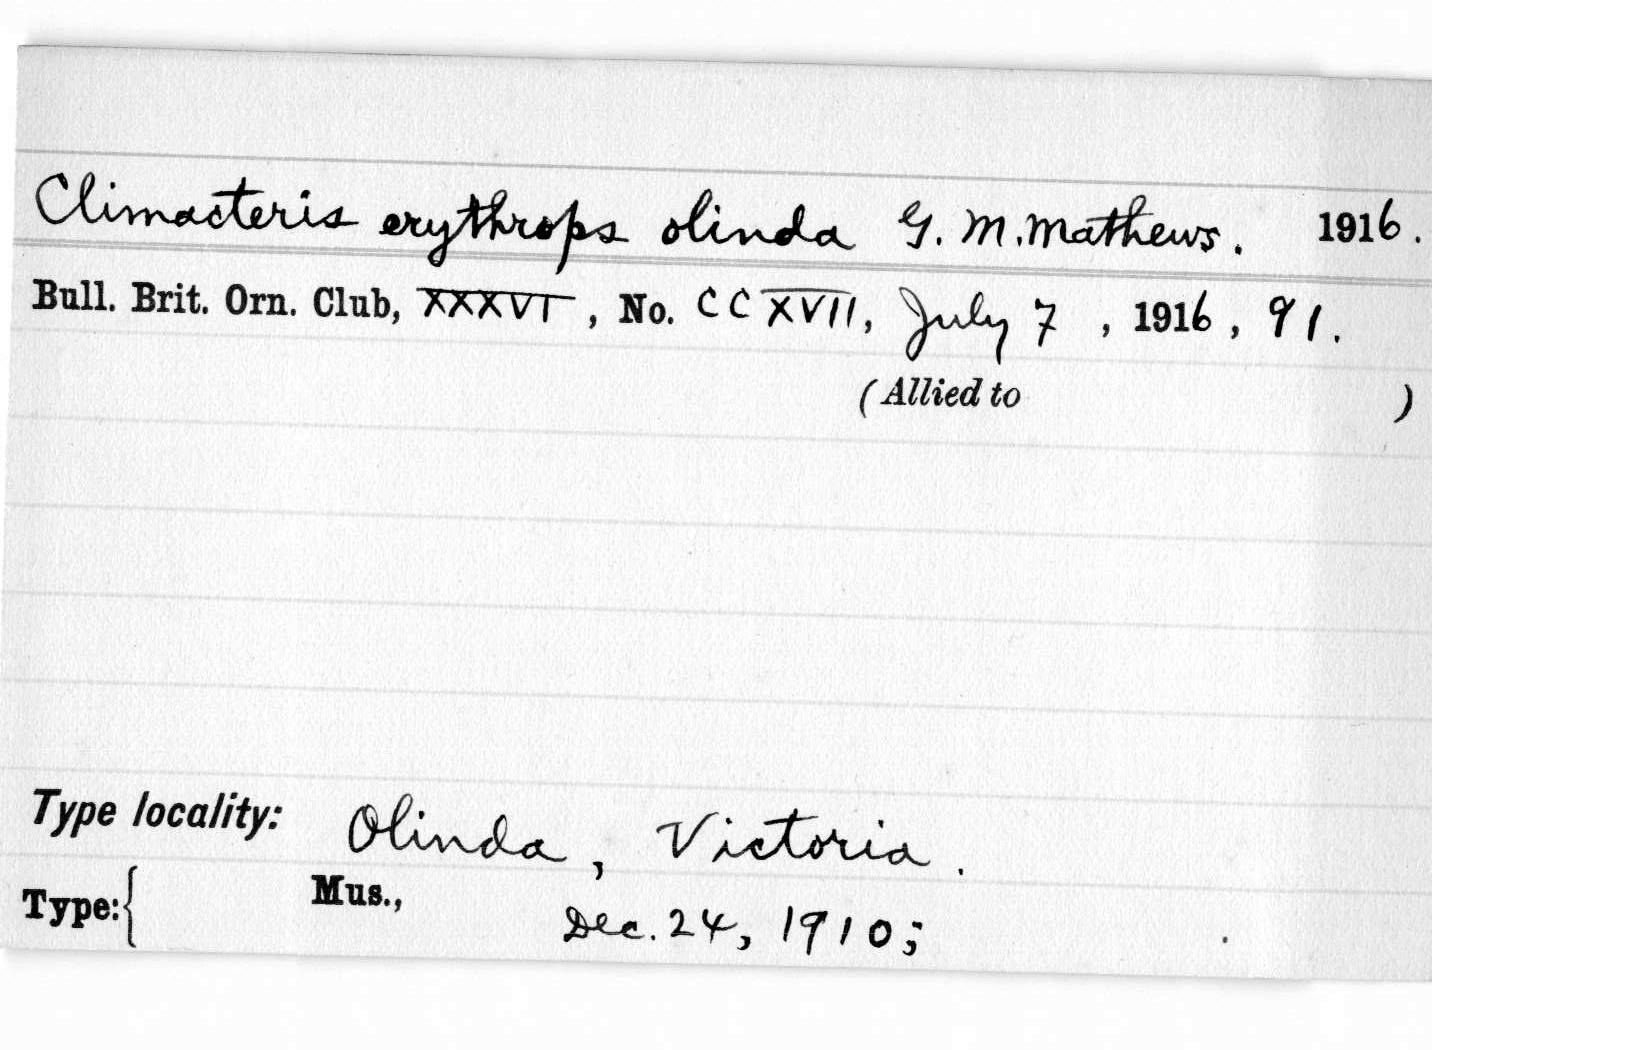 Climacteris erythrops olinda G. M. Mathews. 1916.
Bull. Brit. Orn. Club, XXXVI, No. CCXVII, July 7, 1916, 91.
(Allied to )
Type locality: Olinda, Victoria.
Type: { Mus., Dec. 24, 1910;